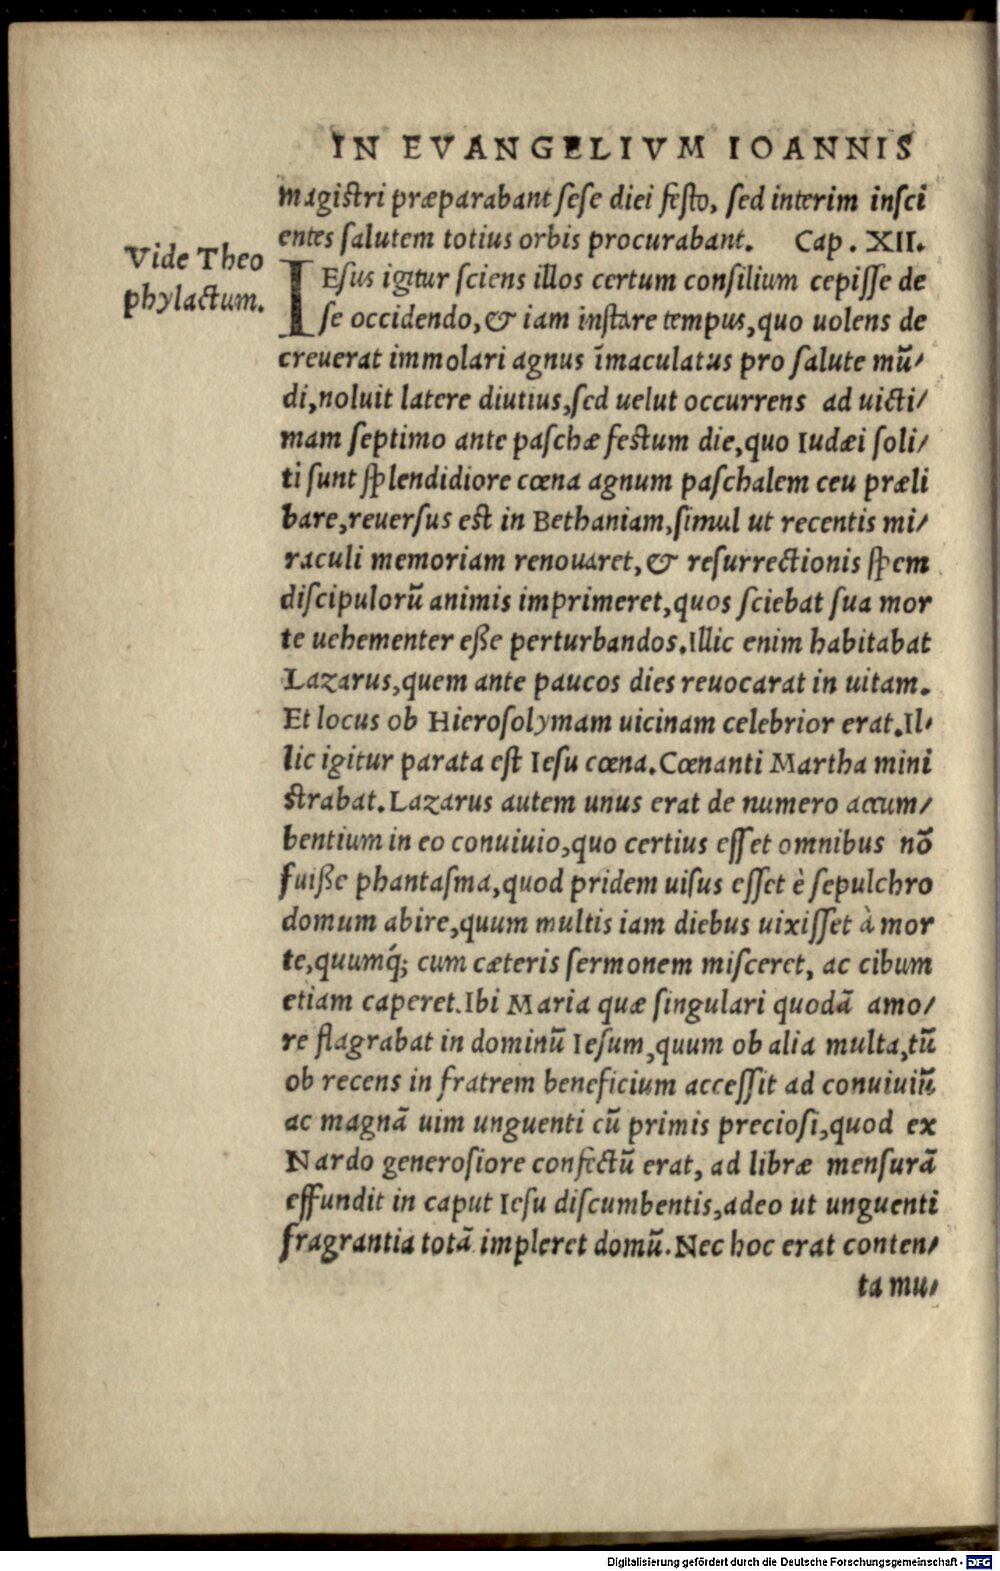 IN EVANGELIVM IOANNIS
magistri præparabant sese diei festo, sed interim insci
entes salutem totius orbis procurabant. Cap. XII.
Vide Theo
phylactum.
IEsus igitur sciens illos certum consilium cepisse de
se occidendo, & iam instare tempus, quo uolens de
creuerat immolari agnus īmaculatus pro salute mū/
di, noluit latere diutius, sed uelut occurrens ad uicti/
mam septimo ante paschæ festum die, quo Iudæi soli/
ti sunt splendidiore cœna agnum paschalem ceu præli
bare, reuersus est in Bethaniam, simul ut recentis mi/
raculi memoriam renouaret, & resurrectionis spem
discipulorū animis imprimeret, quos sciebat sua mor
te uehementer eße perturbandos. Illic enim habitabat
Lazarus, quem ante paucos dies reuocarat in uitam.
Et locus ob Hierosolymam uicinam celebrior erat. Il/
lic igitur parata est Iesu cœna. Cœnanti Martha mini
strabat. Lazarus autem unus erat de numero accum/
bentium in eo conuiuio, quo certius esset omnibus nō
fuiße phantasma, quod pridem uisus esset è sepulchro
domum abire, quum multis iam diebus uixisset à mor
te, quumq́; cum cæteris sermonem misceret, ac cibum
etiam caperet. Ibi Maria quæ singulari quodā amo/
re flagrabat in dominū Iesum, quum ob alia multa, tū
ob recens in fratrem beneficium accessit ad conuiuiū
ac magnā uim unguenti cū primis preciosi, quod ex
Nardo generosiore confectū erat, ad libræ mensurā
effundit in caput Iesu discumbentis, adeo ut unguenti
fragrantia totā impleret domū. Nec hoc erat conten/
ta mu/
Digitalisierung gefördert durch die Deutsche Forschungsgemeinschaft - DFG